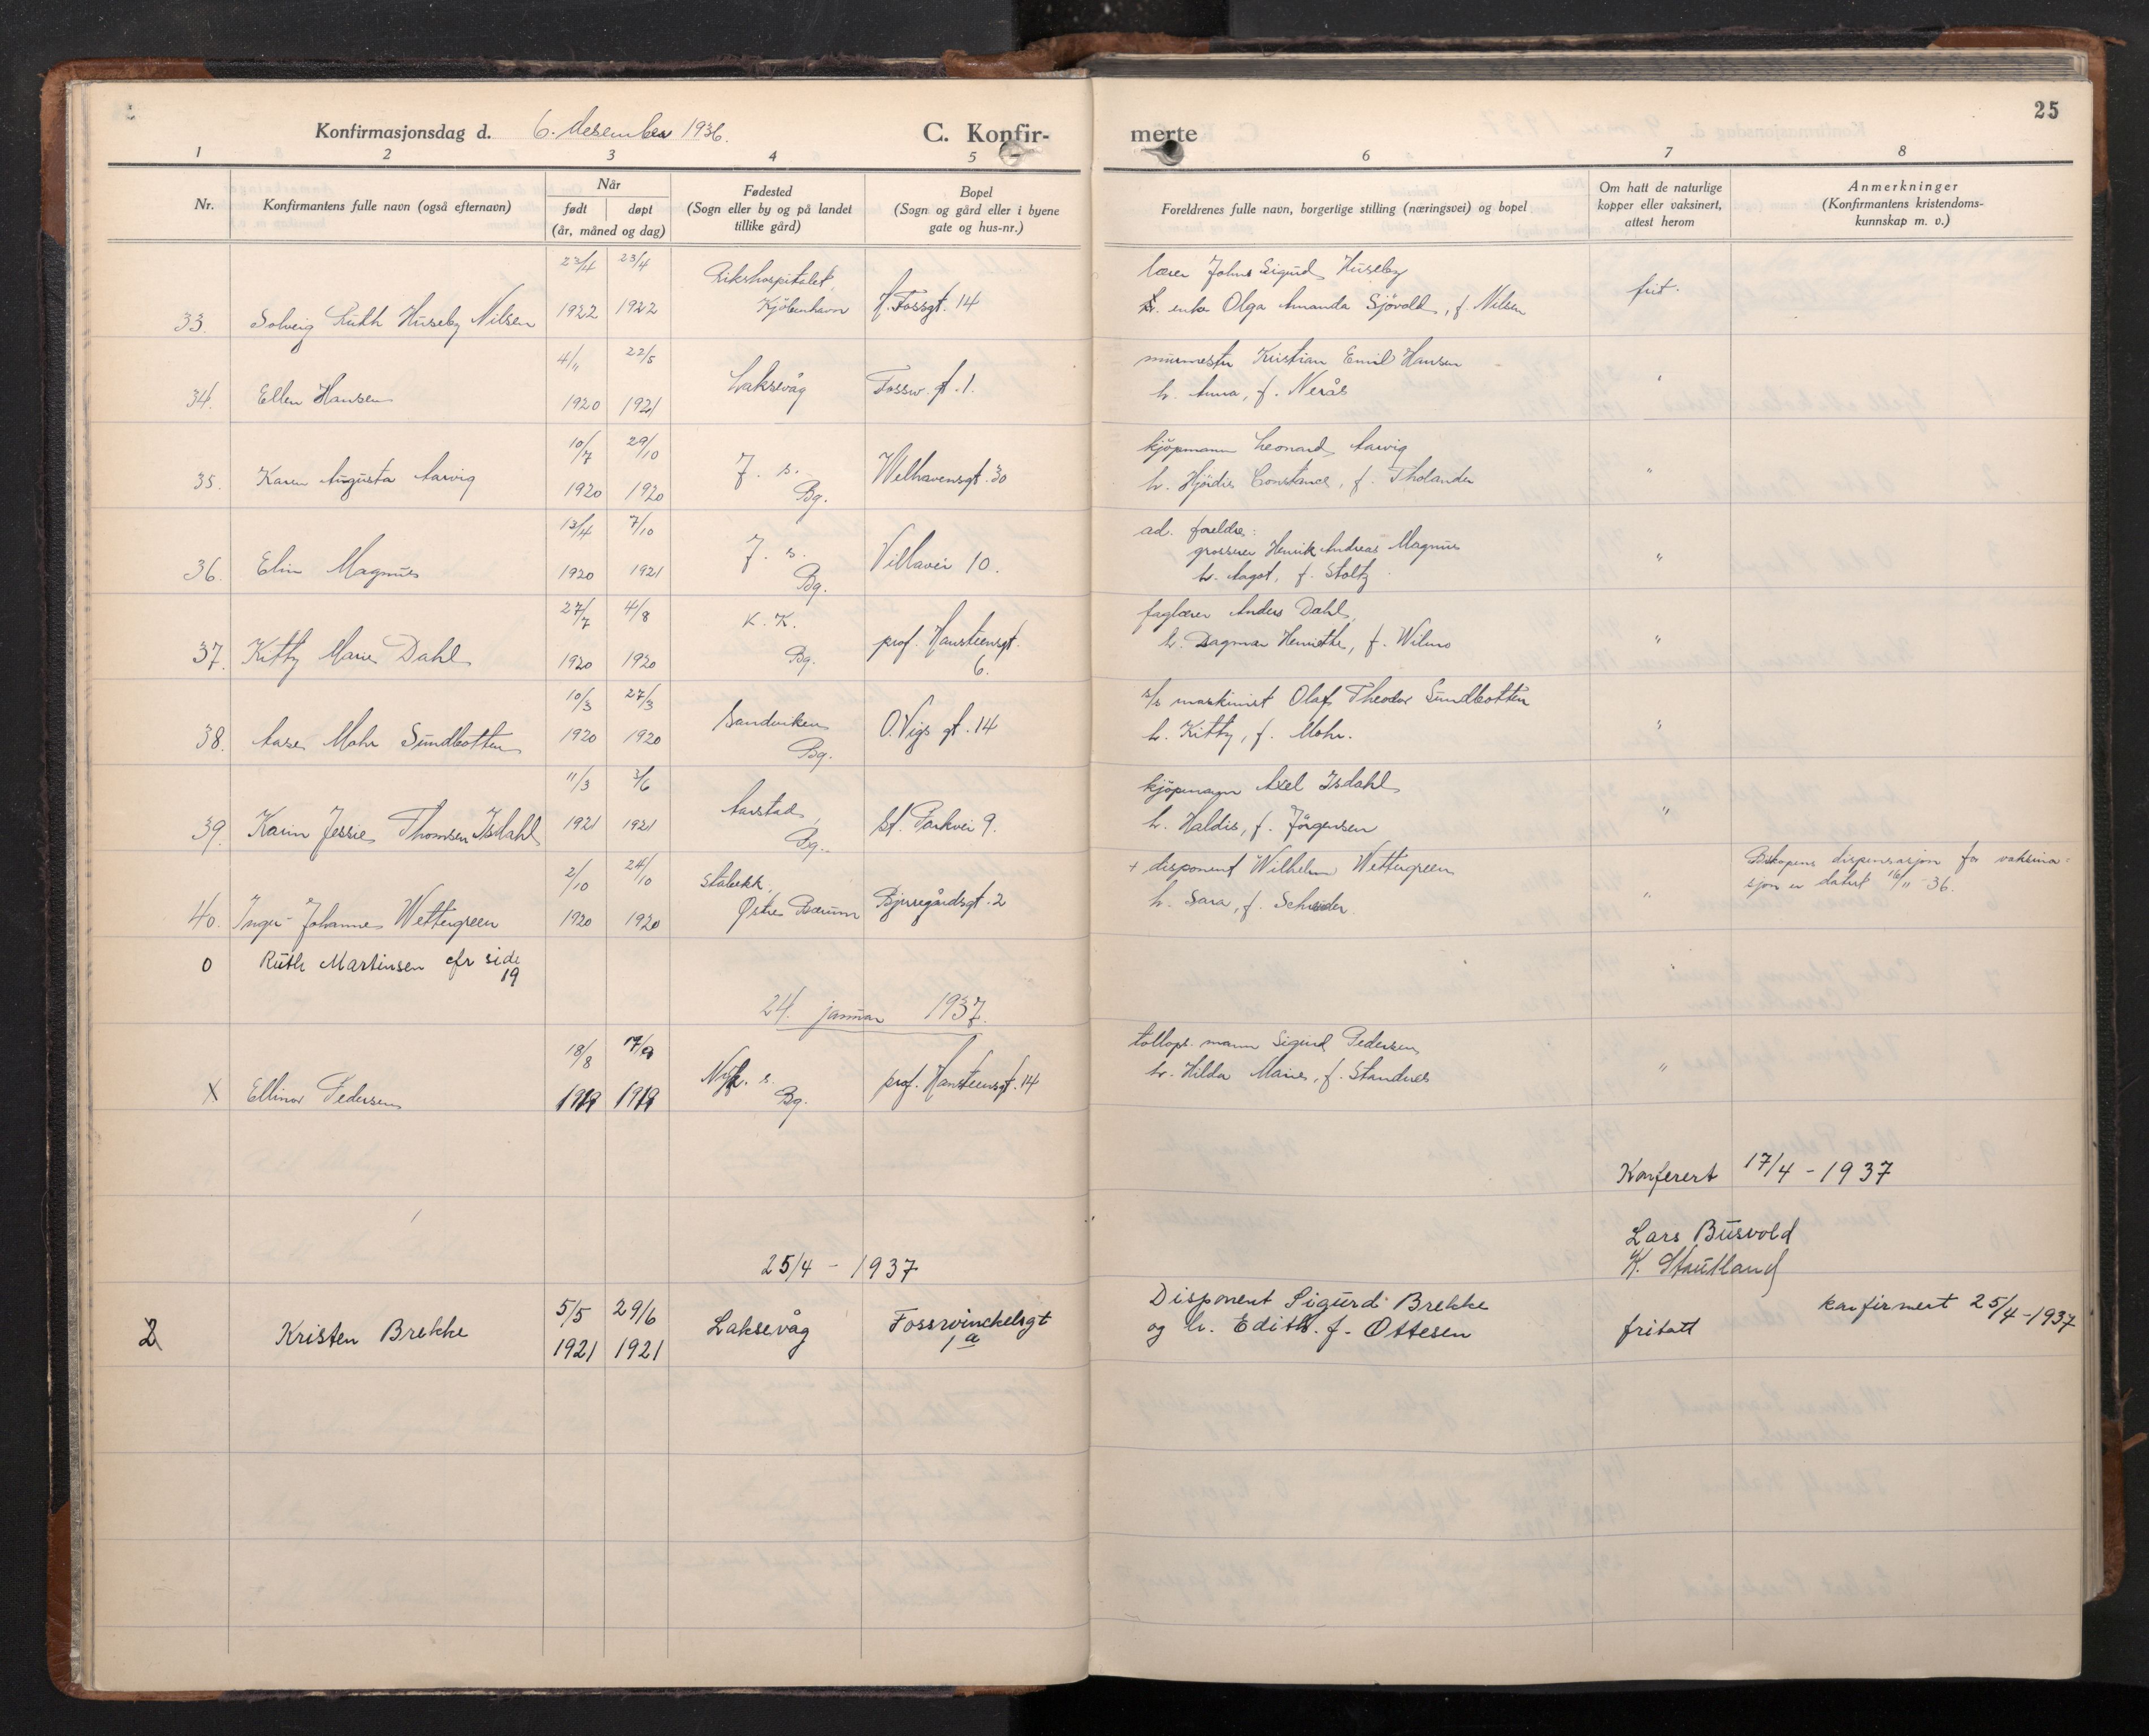 25
Konfirmasjonsdag d. 6. desember 1936. C. Konfir- merte
1 2 3 4 5 6 7 8
Nr.
Konfirmantens fulle navn (også efternavn)
Når
født døpt
(år, måned og dag)
Fødested
(Sogn eller by og på landet
tillike gård)
Bopel
(Sogn og gård eller i byene
gate og hus-nr.)
Foreldrenes fulle navn, borgerlige stilling (næringsvei) og bopel
Om hatt de naturlige
kopper eller vaksinert,
attest herom
Anmerkninger
(Konfirmantens kristendoms-
kunnskap m. v.)
23/4 23/4 Rikshospitalet, lærer Johns Sigurd Huseby
33. Solveig Ruth Huseby Nilsen 1922 1922 Kjøbenhavn H. Fossgt. 14 enke Olga Amanda Sjövold, f. Nilsen frit.
4/11 22/5 murmester Kristian Emil Hansen
34. Ellen Hansen 1920 1921 Laksevåg Fossw. gt. 1. h. Anna, f. Nerås "
10/7 29/10 kjöpmann Leonard Aarvig
35. Karen Augusta Aarvig 1920 1920 J. s. Bg. Welhavensgt. 30 h. Hjördis Constance, f. Tholander "
13/4 7/10 ad. foreldre:
grosserer Henrik Andreas Magnus
36. Elin Magnus 1920 1921 J. s. Bg. Villavei 10. h. Aagot, f. Stoltz "
27/7 4/8 K. K. faglærer Anders Dahl,
37. Kitty Marie Dahl 1920 1920 Bg. prof. Hansteensgt. 6. h. Dagmar Henriette, f. Wilmo "
10/3 27/3 s/s maskinist Olaf Theodor Sundbotten
38. Aase Mohr Sundbotten 1920 1920 Sandviken Bg. O. Vigs gt. 14 h. Kitty, f. Mohr. "
11/3 3/6 kjöpmann Axel Isdahl
39. Karin Jessie Thomsen Isdahl 1921 1921 Aarstad, Bg. St. Parkvei 9. h. Haldis, f. Jörgensen "
2/10 24/10 Stabekk, + disponent Wilhelm Wettergreen Biskopens dispensasjon for vaksina-
40. Inger-Johanne Wettergreen 1920 1920 Østre Bærum Bjerregårdsgt. 2 h. Sara, f. Schrøder. " sjon er datert 16/11-36.
0 Ruth Martinsen cfr side
19 "
24. januar 1937.
18/8 17/9 tollopsmann Sigurd Pedersen
X Ellinor Pedersen 1919 1919 Nyk. s. Bg. prof. Hansteensgt. 14 h. Hilda Marie, f. Standnes "
Konferert 17/4 - 1937
Lars Busvold
K. Stautland
25/4 - 1937
5/5 29/6 Disponent Sigurd Brekke konfirmert 25/4-1937
2 Kristen Brekke 1921 1921 Laksevåg Fosswinckelsgt 1a og h. Edith. f. Ottesen fritatt